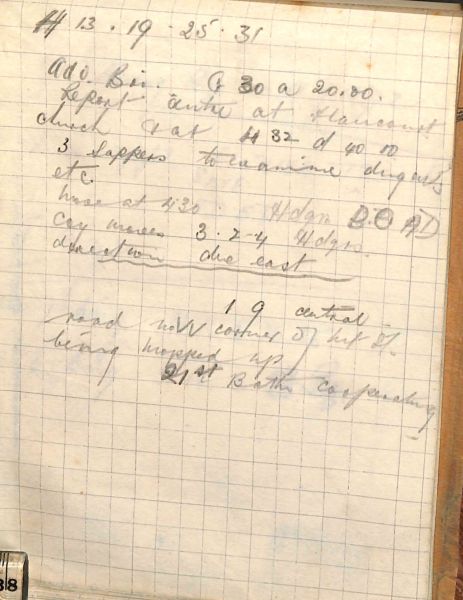 H 13 . 19 . 25 . 31
Adv. Bri. G 30 a 20.80.
Report centre at Hancourt
church & at H 32 d 40 10
3 Sappers to examine dugouts
etc.
hour at 4.30 . Hdqrs B C A D
Coy moves 3. 2-4 Hdqrs.
direction due east
19 central
road corner of
being mopped up
21st Battn cooperating
38